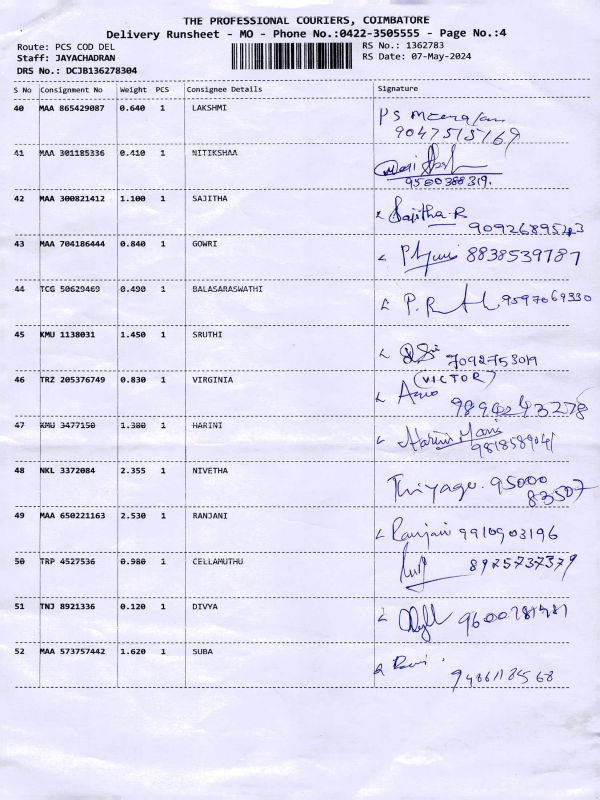 THE PROFESSIONAL COURIERS, COIMBATORE
Delivery Runsheet - MO - Phone No.:0422-3505555 - Page No.:4
Route: PCS COD DEL RS No.: 1362783
Staff: JAYACHADRAN RS Date: 07-May-2024
DRS No.: DCJB136278304
S No Consignment No Weight PCS Consignee Details Signature
40 MAA 865429087 0.640 1 LAKSHMI
PS
9047515169
41 MAA 301185336 0.410 1 NITIKSHAA
9500388319.
42 MAA 300821412 1.100 1 SAJITHA
Sajitha.R
9092689543
43 MAA 704186444 0.840 1 GOWRI
8838539787
44 TCG 50629469 0.490 1 BALASARASWATHI
P. 9597069330
45 KMU 1138031 1.450 1 SRUTHI
46 TRZ 205376749 0.830 1 VIRGINIA
(VICTOR)
47 KMU 3477150 1.380 1 HARINI
Harini
48 NKL 3372084 2.355 1 NIVETHA
Thiyagu. 95000
83507
49 MAA 650221163 2.530 1 RANJANI
Ranjani 9910903196
50 TRP 4527536 0.980 1 CELLAMUTHU
8925737379
51 TNJ 8921336 0.120 1 DIVYA
52 MAA 573757442 1.620 1 SUBA